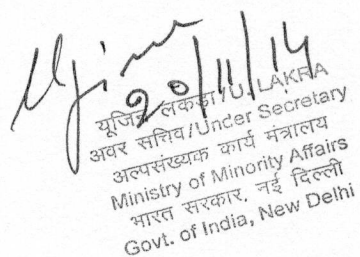 20/11/14
यूजिन लकड़ा/U. LAKRA
अवर सचिव/Under Secretary
अल्पसंख्यक कार्य मंत्रालय
Ministry of Minority Affairs
भारत सरकार, नई दिल्ली
Govt. of India, New Delhi